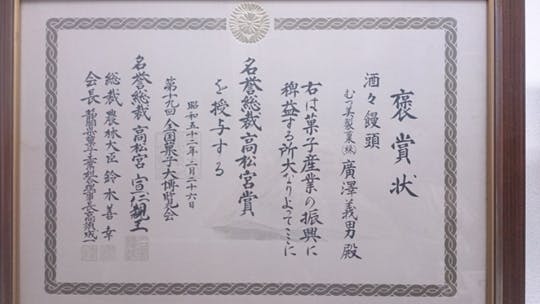 褒賞状
酒々饅頭
むつ美製菓(株) 廣澤義男殿
右は菓子産業の振興に
裨益する所大なりよってここに
名誉総裁高松宮賞
を授与する
昭和五十二年二月二十六日
第十九回全国菓子大博覧会
名誉総裁 高松宮 宣仁親王
総裁 農林大臣 鈴木善幸
会長